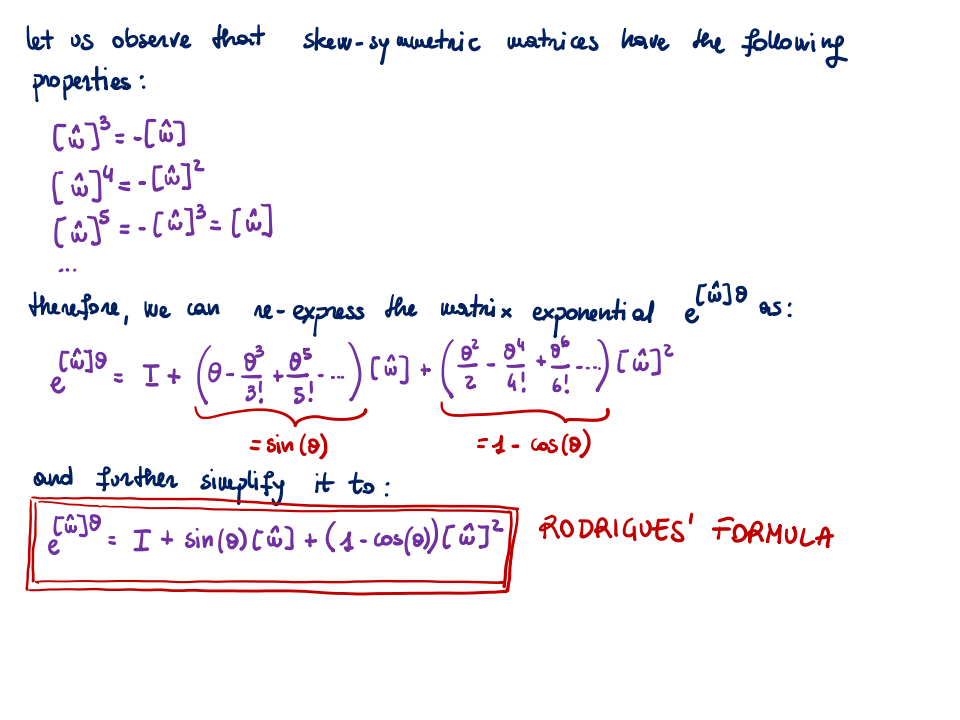 let us observe that skew-symmetric matrices have the following
properties:
[ŵ]³ = -[ŵ]
[ŵ]⁴ = -[ŵ]²
[ŵ]⁵ = -[ŵ]³ = [ŵ]
...
therefore, we can re-express the matrix exponential e^[ŵ]θ as:
e^[ŵ]θ = I + (θ - θ³/3! + θ⁵/5! - ...) [ŵ] + (θ²/2 - θ⁴/4! + θ⁶/6! - ...) [ŵ]²
= sin(θ) = 1 - cos(θ)
and further simplify it to:
e^[ŵ]θ = I + sin(θ)[ŵ] + (1 - cos(θ))[ŵ]² RODRIGUES' FORMULA